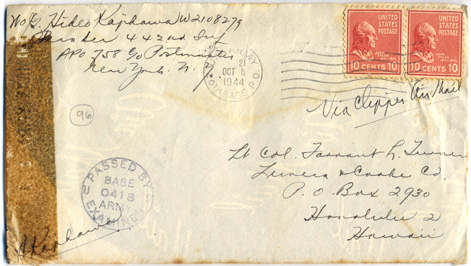 WOJG. Hideo Kajikawa W2108279
442nd Inf
APO 758 c/o Postmaster
New York. N.Y.
ARMY
P.O.
21
OCT 6
1944
UNITED STATES POSTAGE
10 CENTS 10
UNITED STATES POSTAGE
10 CENTS 10
Via Clipper Air Mail
96
PASSED BY
BASE
0418
ARMY
EXAMINER
Lt Col. Farrant L. Turner
& Cooke Co
P.O. Box 2930
Honolulu 2
Hawaii